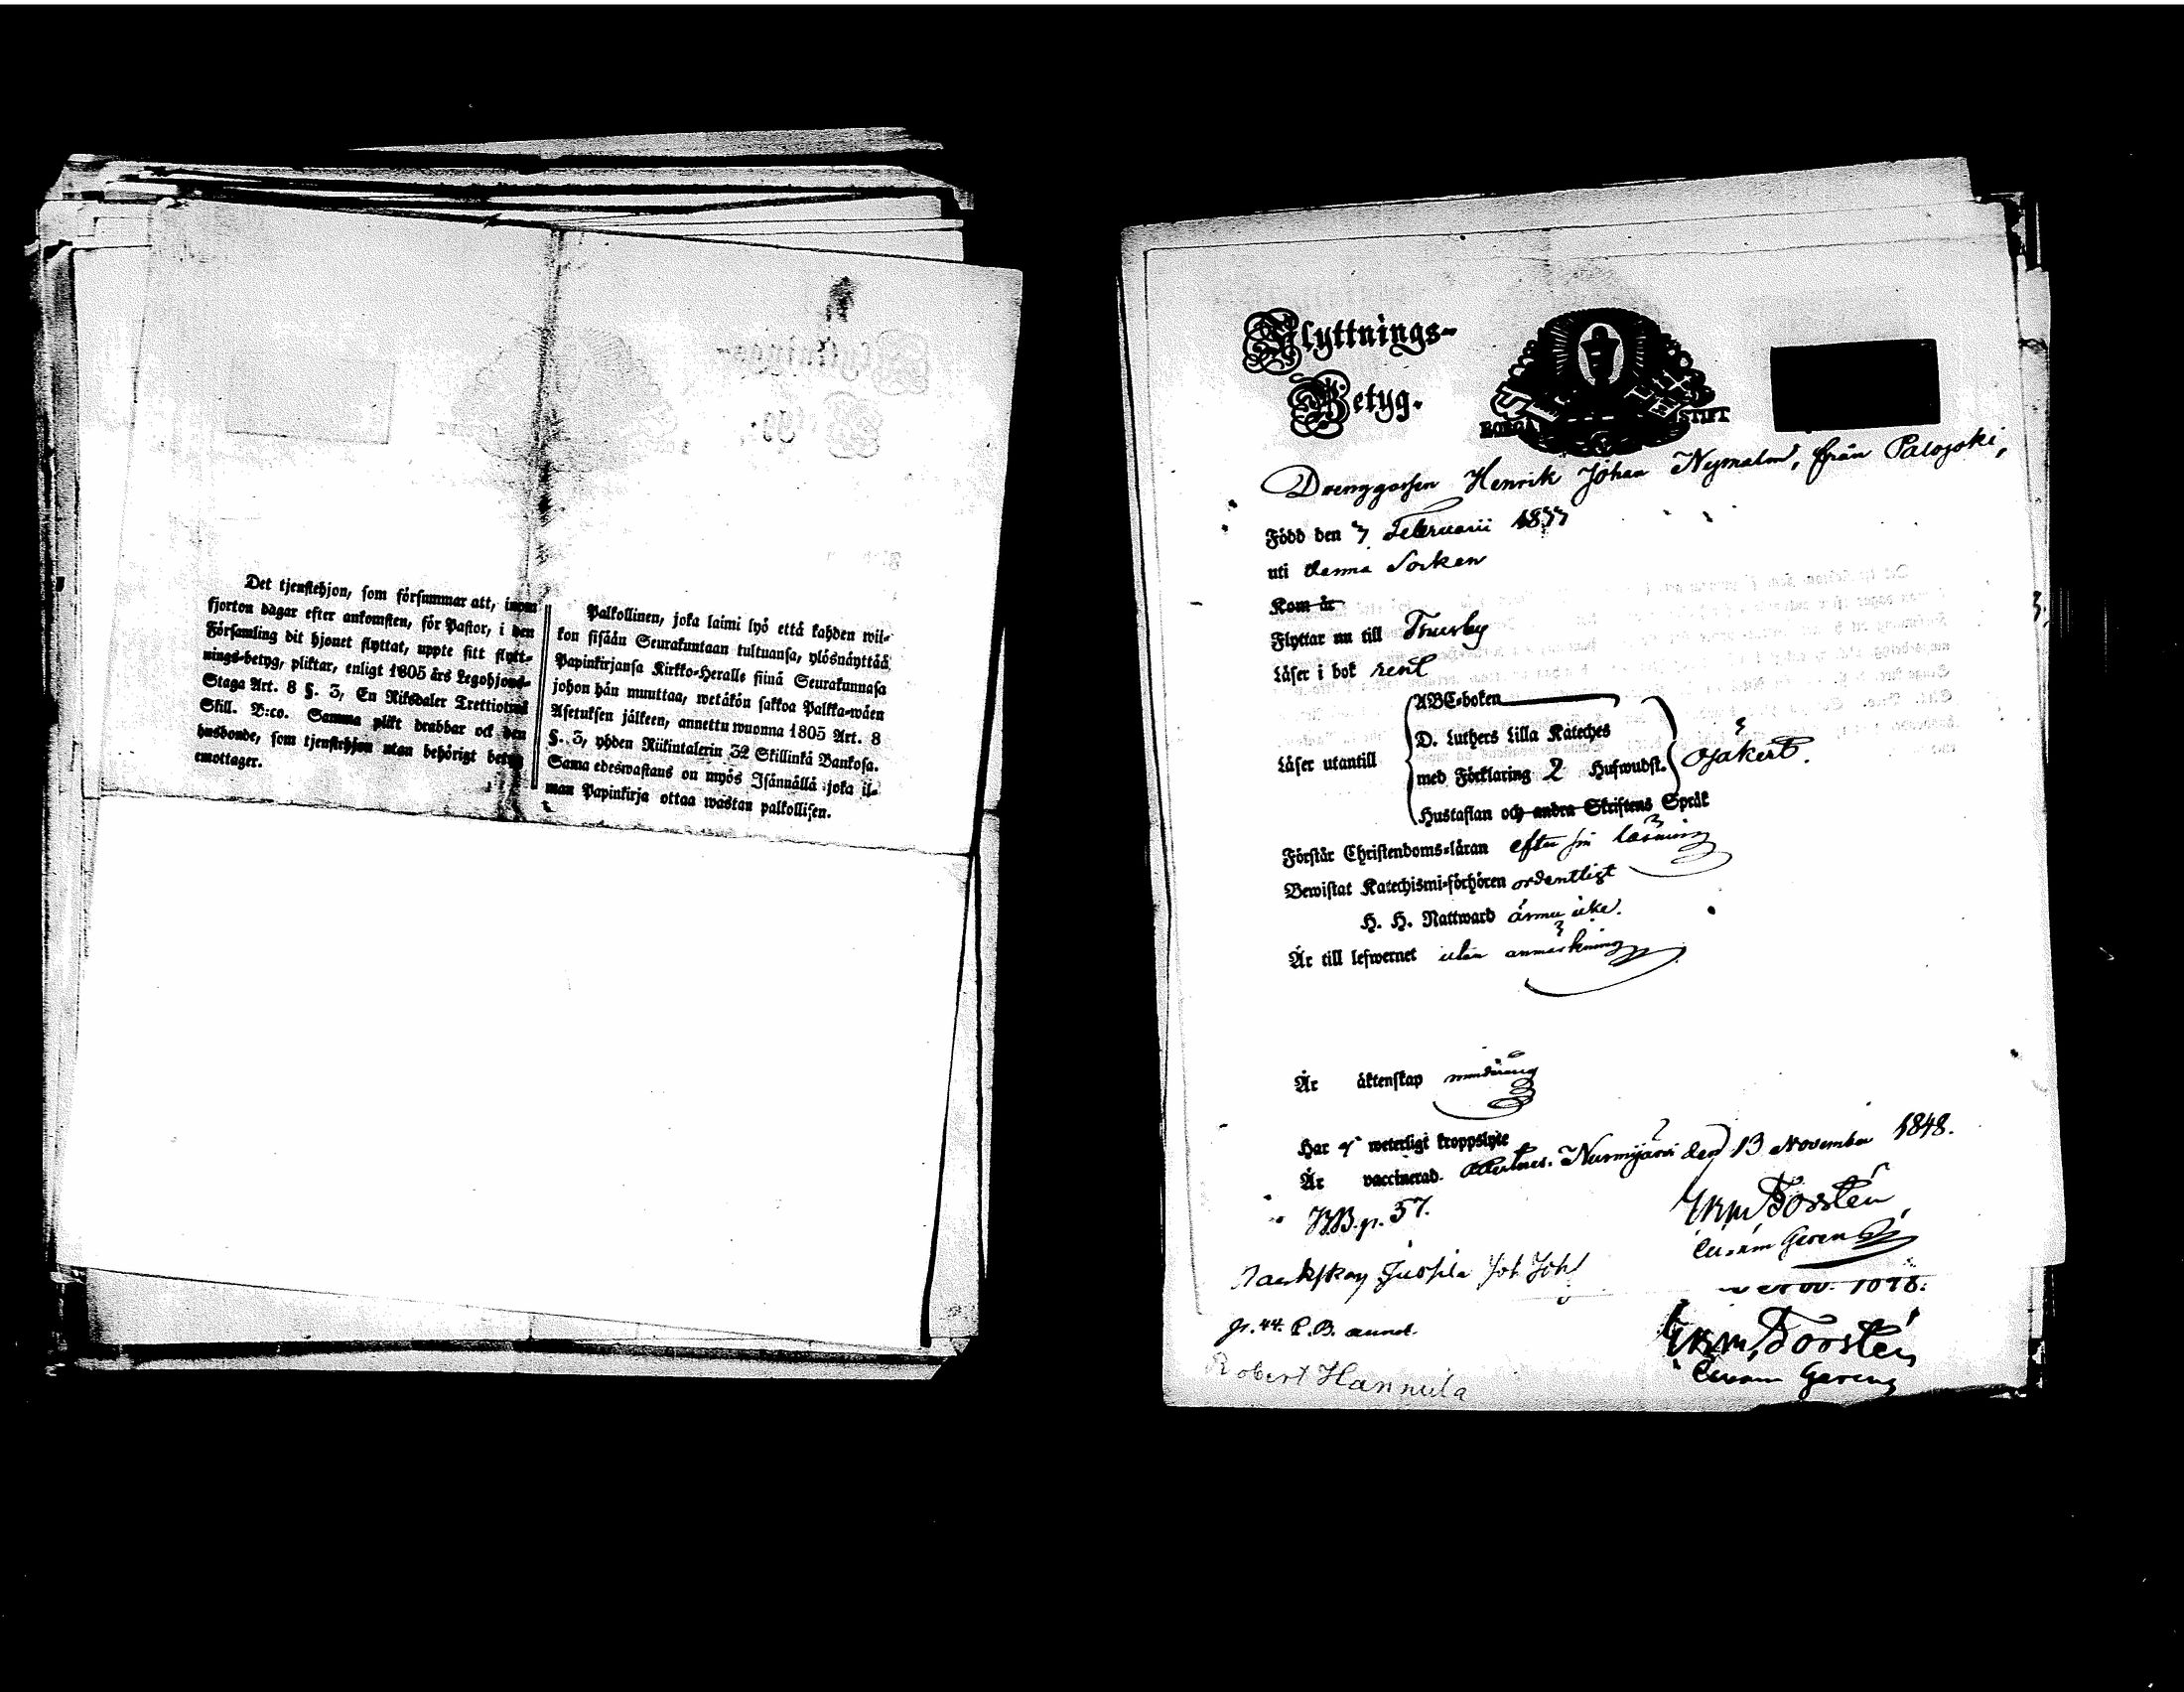 Det tjenstehjon, som försummar att, inom
fjorton dagar efter ankomsten, för Pastor, i den
Församling dit hjonet flyttat, uppte sitt flytt-
nings-betyg, pliktar, enligt 1805 års Legohjons-
Staga Art. 8 §. 3, En Riksdaler Trettiotwå
Skill. B:co. Samma plikt drabbar ock den
husbonde, som tjenstehjon utan behörigt betyg
emottager.
Palkollinen, joka laimi lyö että kahden wii-
kon sisään Seurakuntaan tultuansa, ylösnäyttää
Papinkirjansa Kirkko-Heralle siinä Seurakunnasa
johon hän muuttaa, wetäkön sakkoa Palkka-wäen
Asetuksen jälkeen, annettu wuonna 1805 Art. 8
§. 3, yhden Riikintalerin 32 Skillinkä Bankosa.
Sama edeswastaus on myös Isännällä joka il-
man Papinkirja ottaa wastan palkollisen.
Flyttnings-
Betyg.
BORGÅ STIFT
Drenggossen Henrik Johan Nymalm, från Palojoki,
Född den 7 Februarii 1833
uti denna Socken
Kom år
Flyttar nu till Thusby
Läser i bok rent
Läser utantill
ABC-boken
D. Luthers Lilla Kateches
med Förklaring 2 Hufwudst.
Hustaflan och andra Skriftens Språk
osäkert.
Förstår Christendoms-läran efter sin läsning
Bewistat Katechismi-förhören ordentligt
H. H. Nattward ännu icke.
Är till lefwernet utan anmärkning
Är äktenskap minderårig
Har ej weterligt kroppslyte
Är vaccinerad. Nurmijärvi den 13 November 1848.
KB. p. 57.
Torstén
p. 44. C. B. annot.
Torstén
Robert Hannula